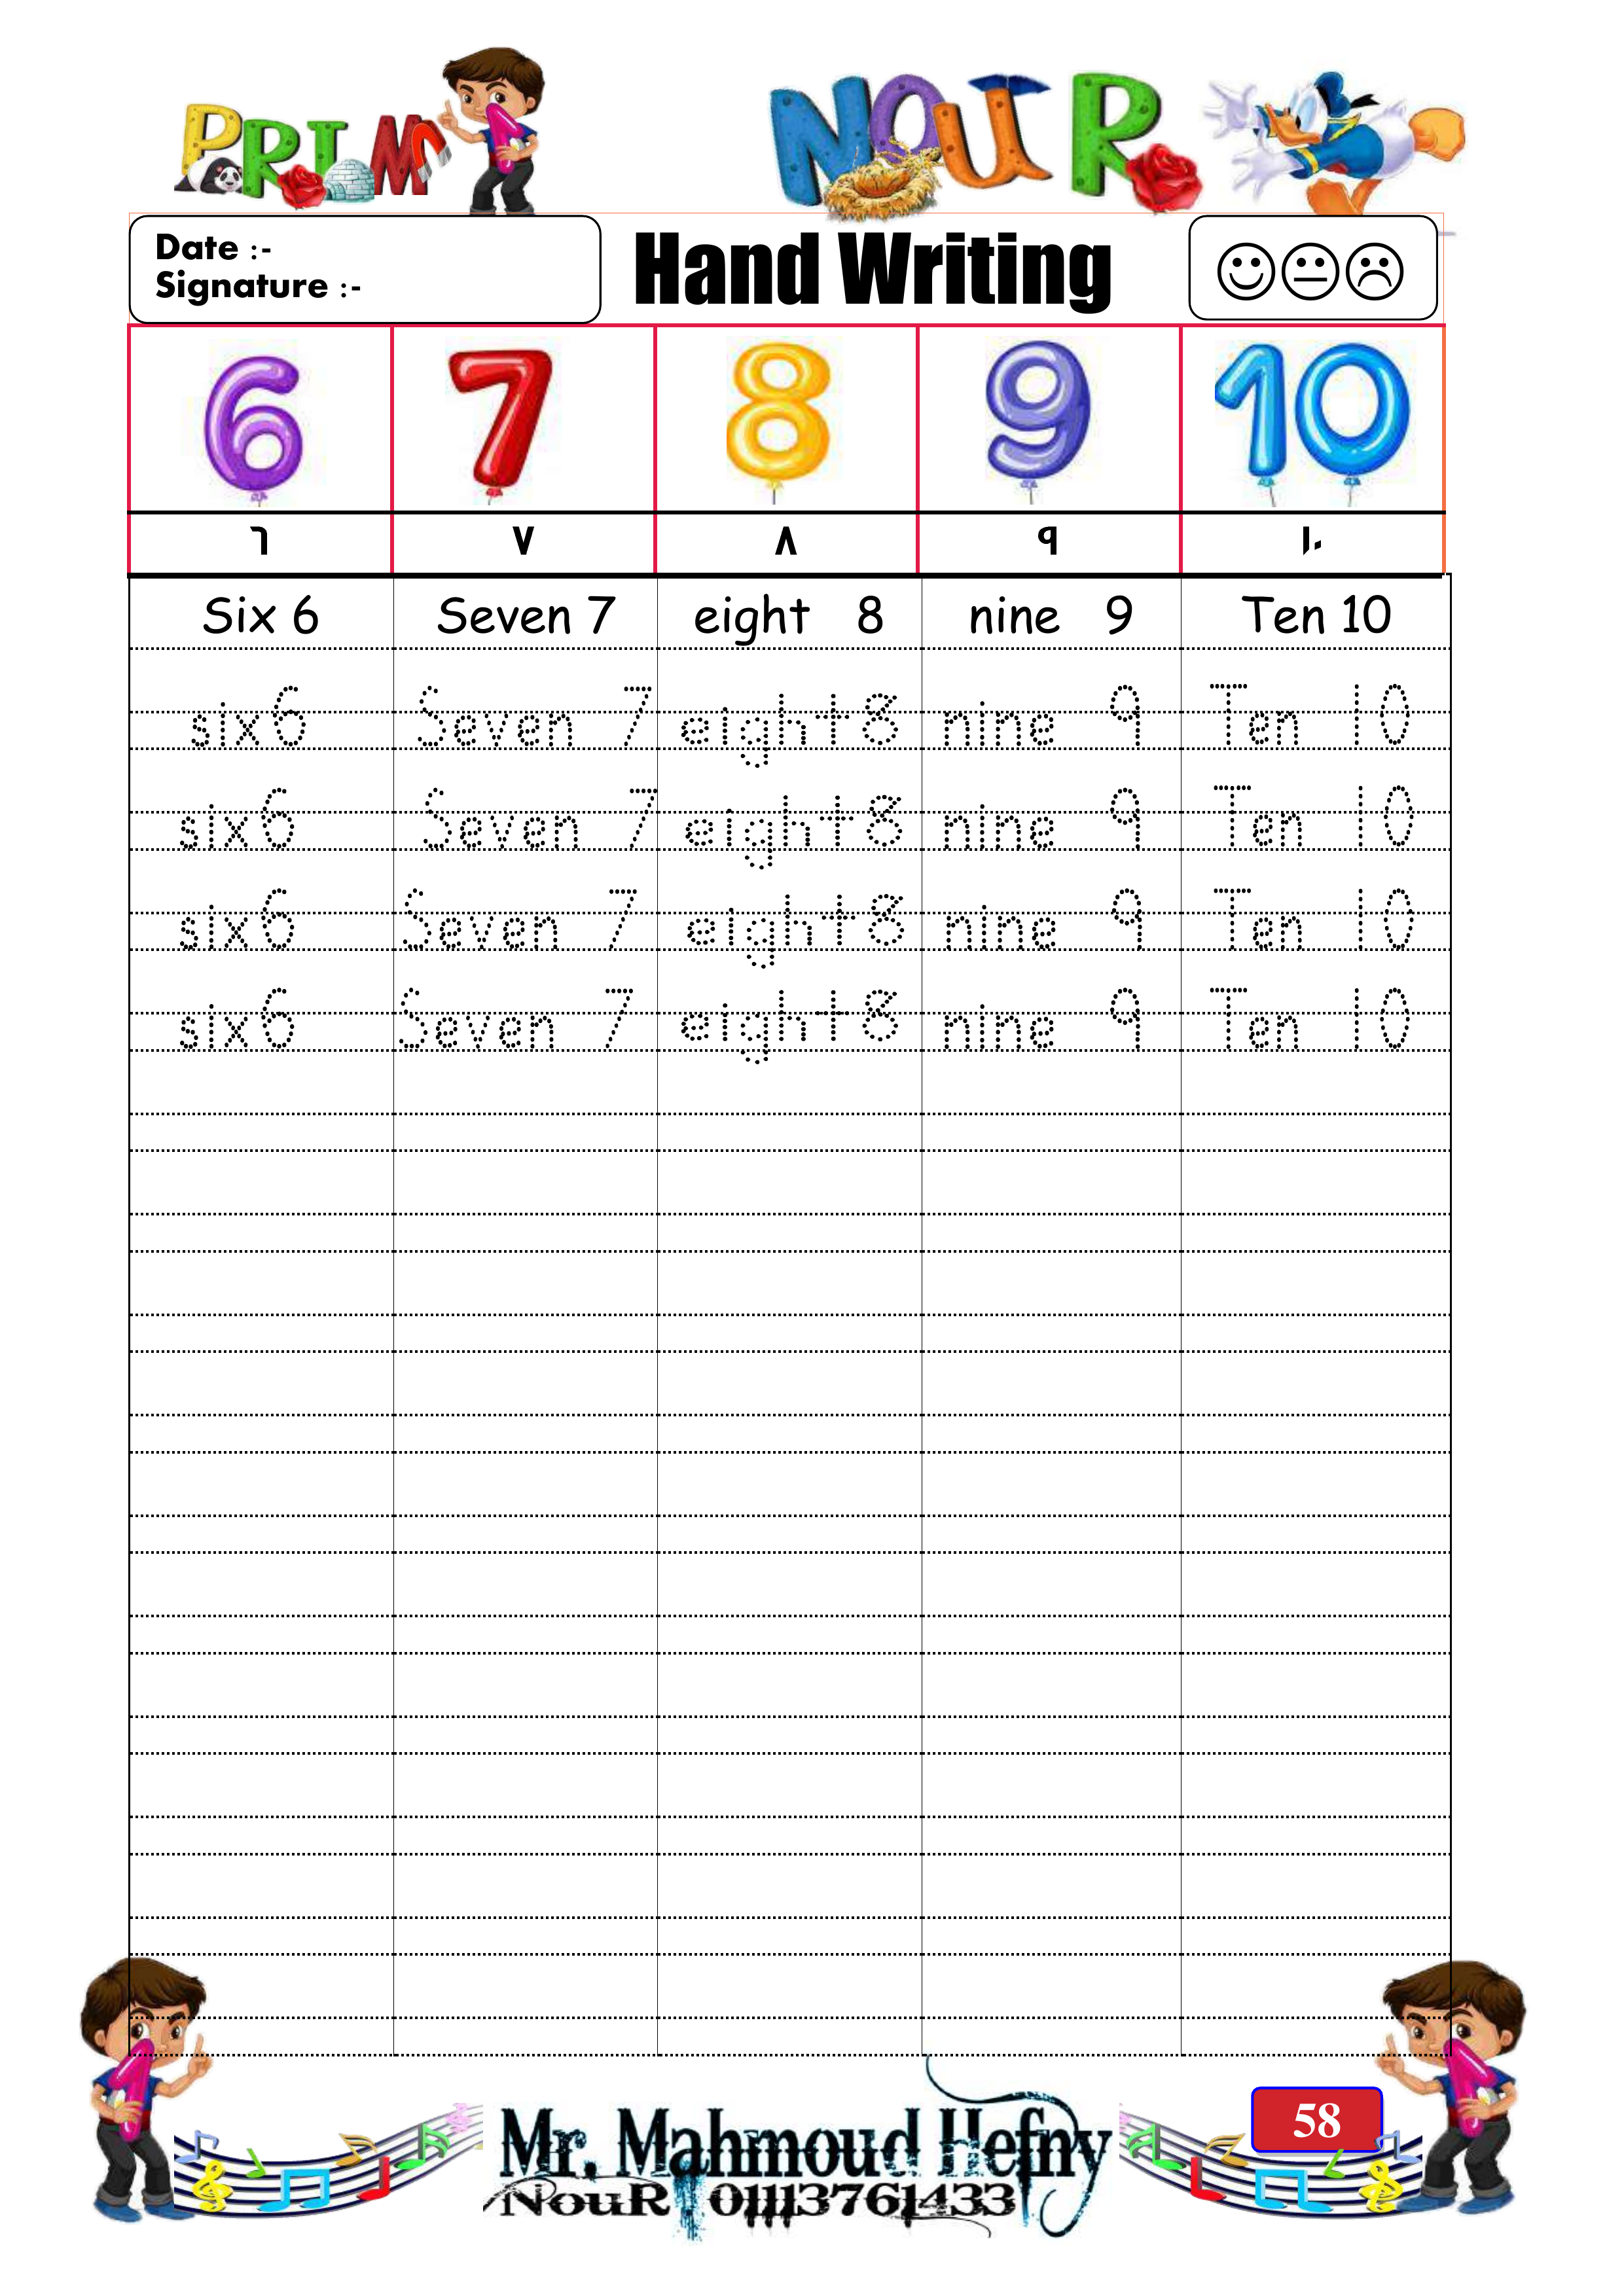 PRIM 1 NOUR
Date :-
Signature :-
Hand Writing
6 7 8 9 10
٦ ٧ ٨ ٩ ١٠
Six 6 Seven 7 eight 8 nine 9 Ten 10
six6 Seven 7 eight8 nine 9 Ten 10
six6 Seven 7 eight8 nine 9 Ten 10
six6 Seven 7 eight8 nine 9 Ten 10
six6 Seven 7 eight8 nine 9 Ten 10
58
Mr. Mahmoud Hefny
NouR 01113761433